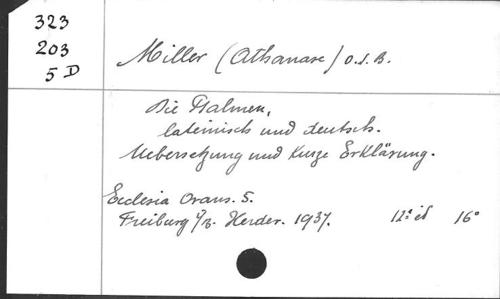 323
203
5 D
Miller (Athanase) O.S.B.
Die Psalmen,
lateinisch und deutsch.
Uebersetzung und kurze Erklärung.
Ecclesia Orans. 5.
Freiburg i/B. Herder. 1937. 12° éd 16°